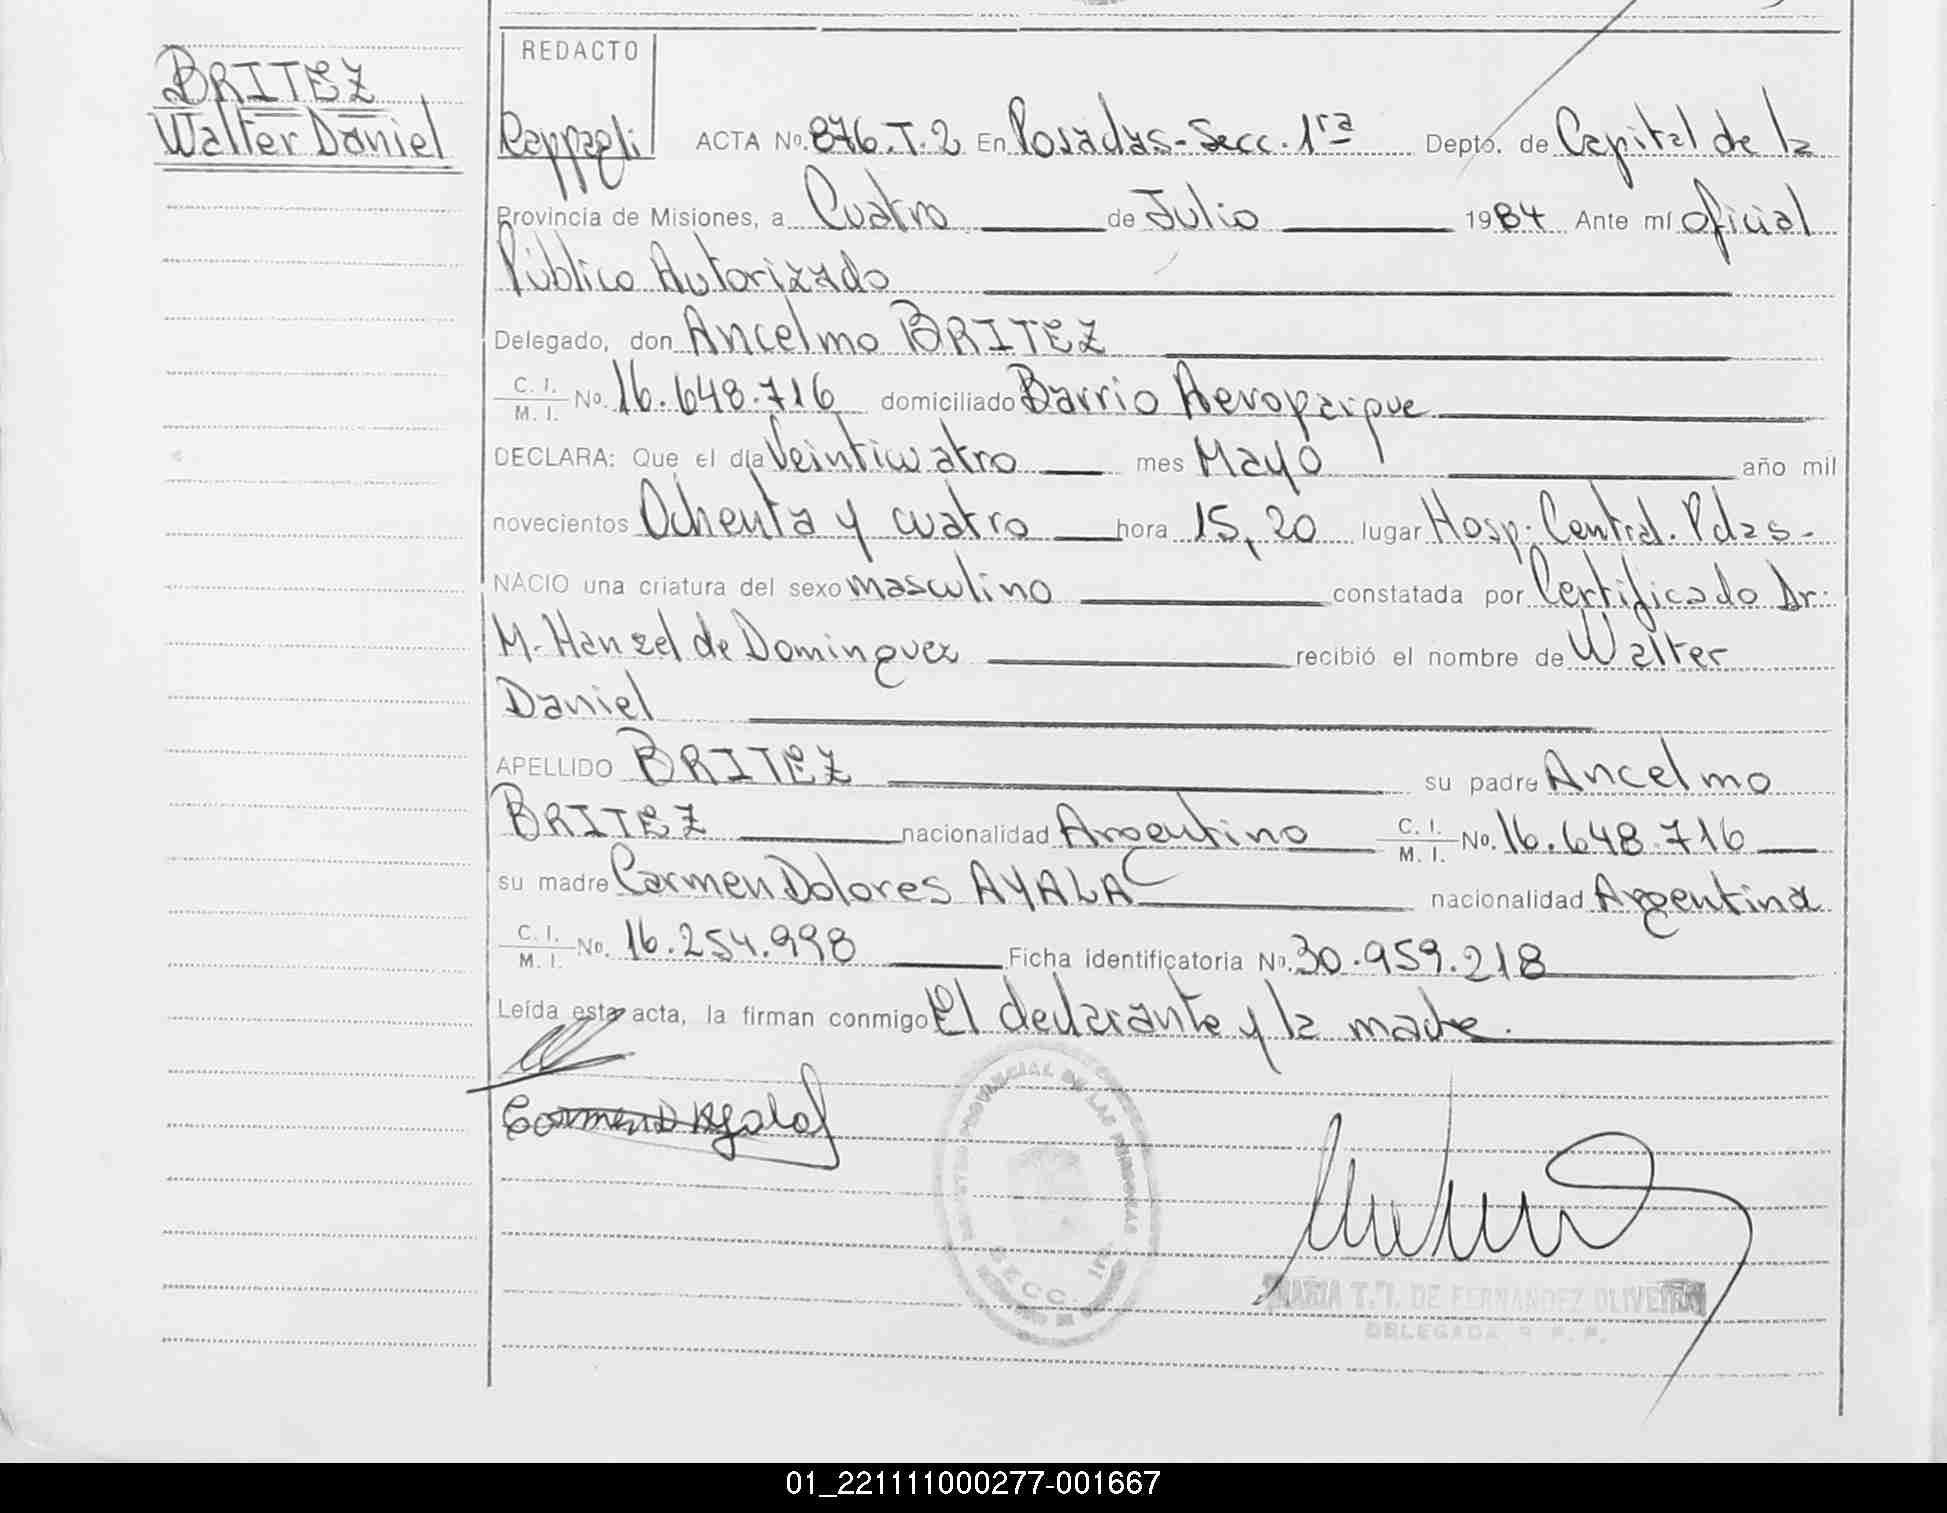 BRITEZ
Walter Daniel
REDACTO
ACTA No. 876.T.2 En Posadas-Secc. 1ra Depto. de Capital de la
Provincia de Misiones, a Cuatro de Julio 1984 Ante mí oficial
Público Autorizado
Delegado, don Ancelmo BRITEZ
C. I. / M. I. No. 16.648.716 domiciliado Barrio Aeroparque
DECLARA: Que el día Veinticuatro mes Mayo año mil
novecientos Ochenta y cuatro hora 15,20 lugar Hosp. Central. Pdas-
NACIO una criatura del sexo masculino constatada por Certificado Dr:
M. Hanzel de Dominguez recibió el nombre de Walter
Daniel
APELLIDO BRITEZ su padre Ancelmo
BRITEZ nacionalidad Argentino C. I. / M. I. No. 16.648.716
su madre Carmen Dolores AYALA nacionalidad Argentina
C. I. / M. I. No. 16.254.998 Ficha identificatoria No. 30.959.218
Leída esta acta, la firman conmigo El declarante y la madre.
Carmen D Ayala
PROVINCIAL DE LAS PERSONAS
SECC. 1ra
MARIA T. I. DE FERNANDEZ OLIVEIRA
DELEGADA R. P. P.
01_221111000277-001667